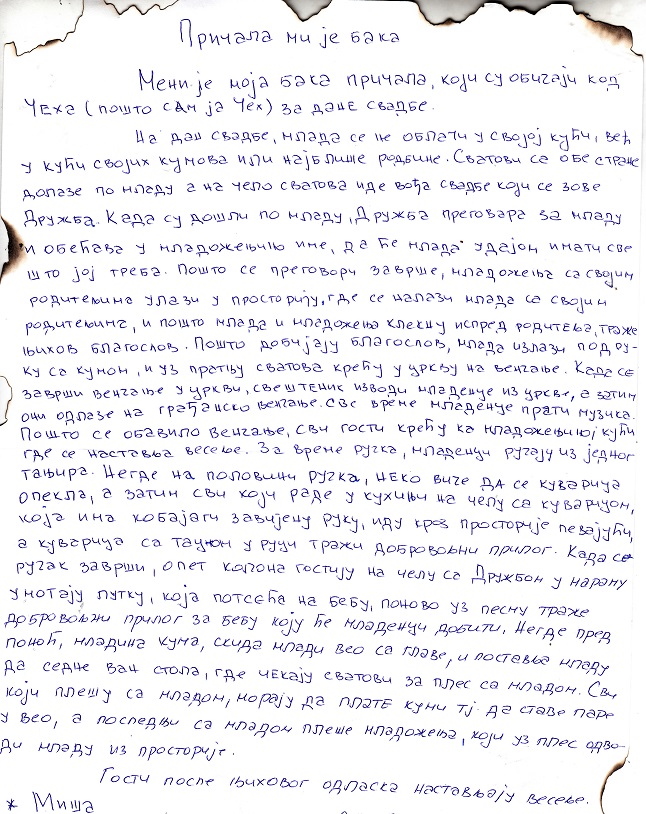 Причала ми је бака
Мени је моја бака причала, који су обичаји код
Чеха (пошто сам ја Чех) за дане свадбе.
На дан свадбе, млада се не облачи у својој кући, већ
у кући својих кумова или најближе родбине. Сватови са обе стране
долазе по младу а на чело сватова иде вођа свадбе који се зове
Дружба. Када су дошли по младу, Дружба преговара за младу
и обећава у младожењино име, да ће млада удајом имати све
што јој треба. Пошто се преговори заврше, младожења са својим
родитељима улази у просторију, где се налази млада са својим
родитељима, и пошто млада и младожења клекну испред родитеља, траже
њихов благослов. Пошто добијају благослов, млада излази под ру-
ку са кумом, и уз пратњу сватова крећу у цркву на венчање. Када се
заврши венчање у цркви, свештеник изводи младенце из цркве, а затим
они одлазе на грађанско венчање. Све време младенце прати музика.
Пошто се обавило венчање, сви гости крећу ка младожењиној кући
где се наставља весеље. За време ручка, младенци ручају из једног
тањира. Негде на половини ручка, неко виче да се куварица
опекла, а затим сви који раде у кухињи на челу са куварицом,
која има кобајаги завијену руку, иду кроз просторије певајући,
а куварица са тацном у руци тражи добровољни прилог. Када се
ручак заврши, опет колона гостију на челу са Дружбом у нарамку
умотају лутку, која потсећа на бебу, поново уз песму траже
добровољни прилог за бебу коју ће младенци добити. Негде пред
поноћ, младина кума, скида млади вео са главе, и поставља младу
да седне ван стола, где чекају сватови за плес са младом. Сви
који плешу са младом, морају да плате куми тј. да ставе паре
у вео, а последњи са младом плеше младожења, који уз плес одво-
ди младу из просторије.
Гости после њиховог одласка настављају весеље.
* Миша